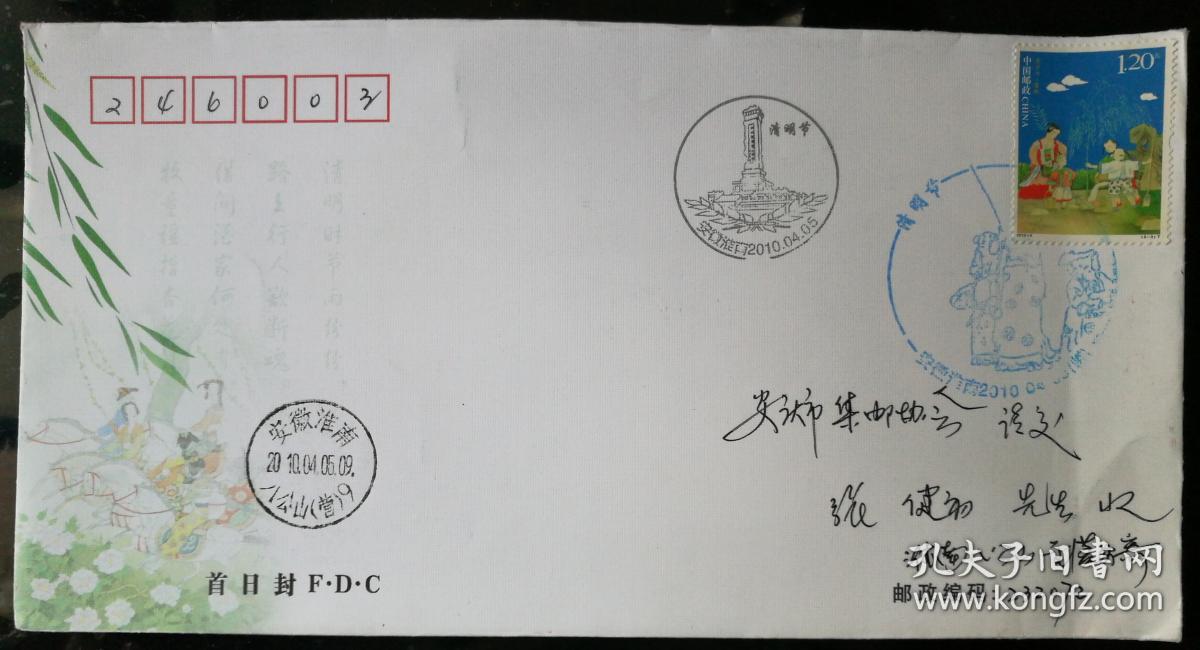 246003
1.20元
中国邮政 CHINA
清明节
安徽淮南2010.04.05
清明节
安徽淮南2010 04
清明时节雨纷纷
路上行人欲断魂
借问酒家何处有
牧童遥指杏
安徽淮南
2010.04.05.09.
八公山(营)9
安庆市集邮协会 请交
张健初 先生 收
首日封 F·D·C
邮政编码:
孔夫子旧书网
www.kongfz.com